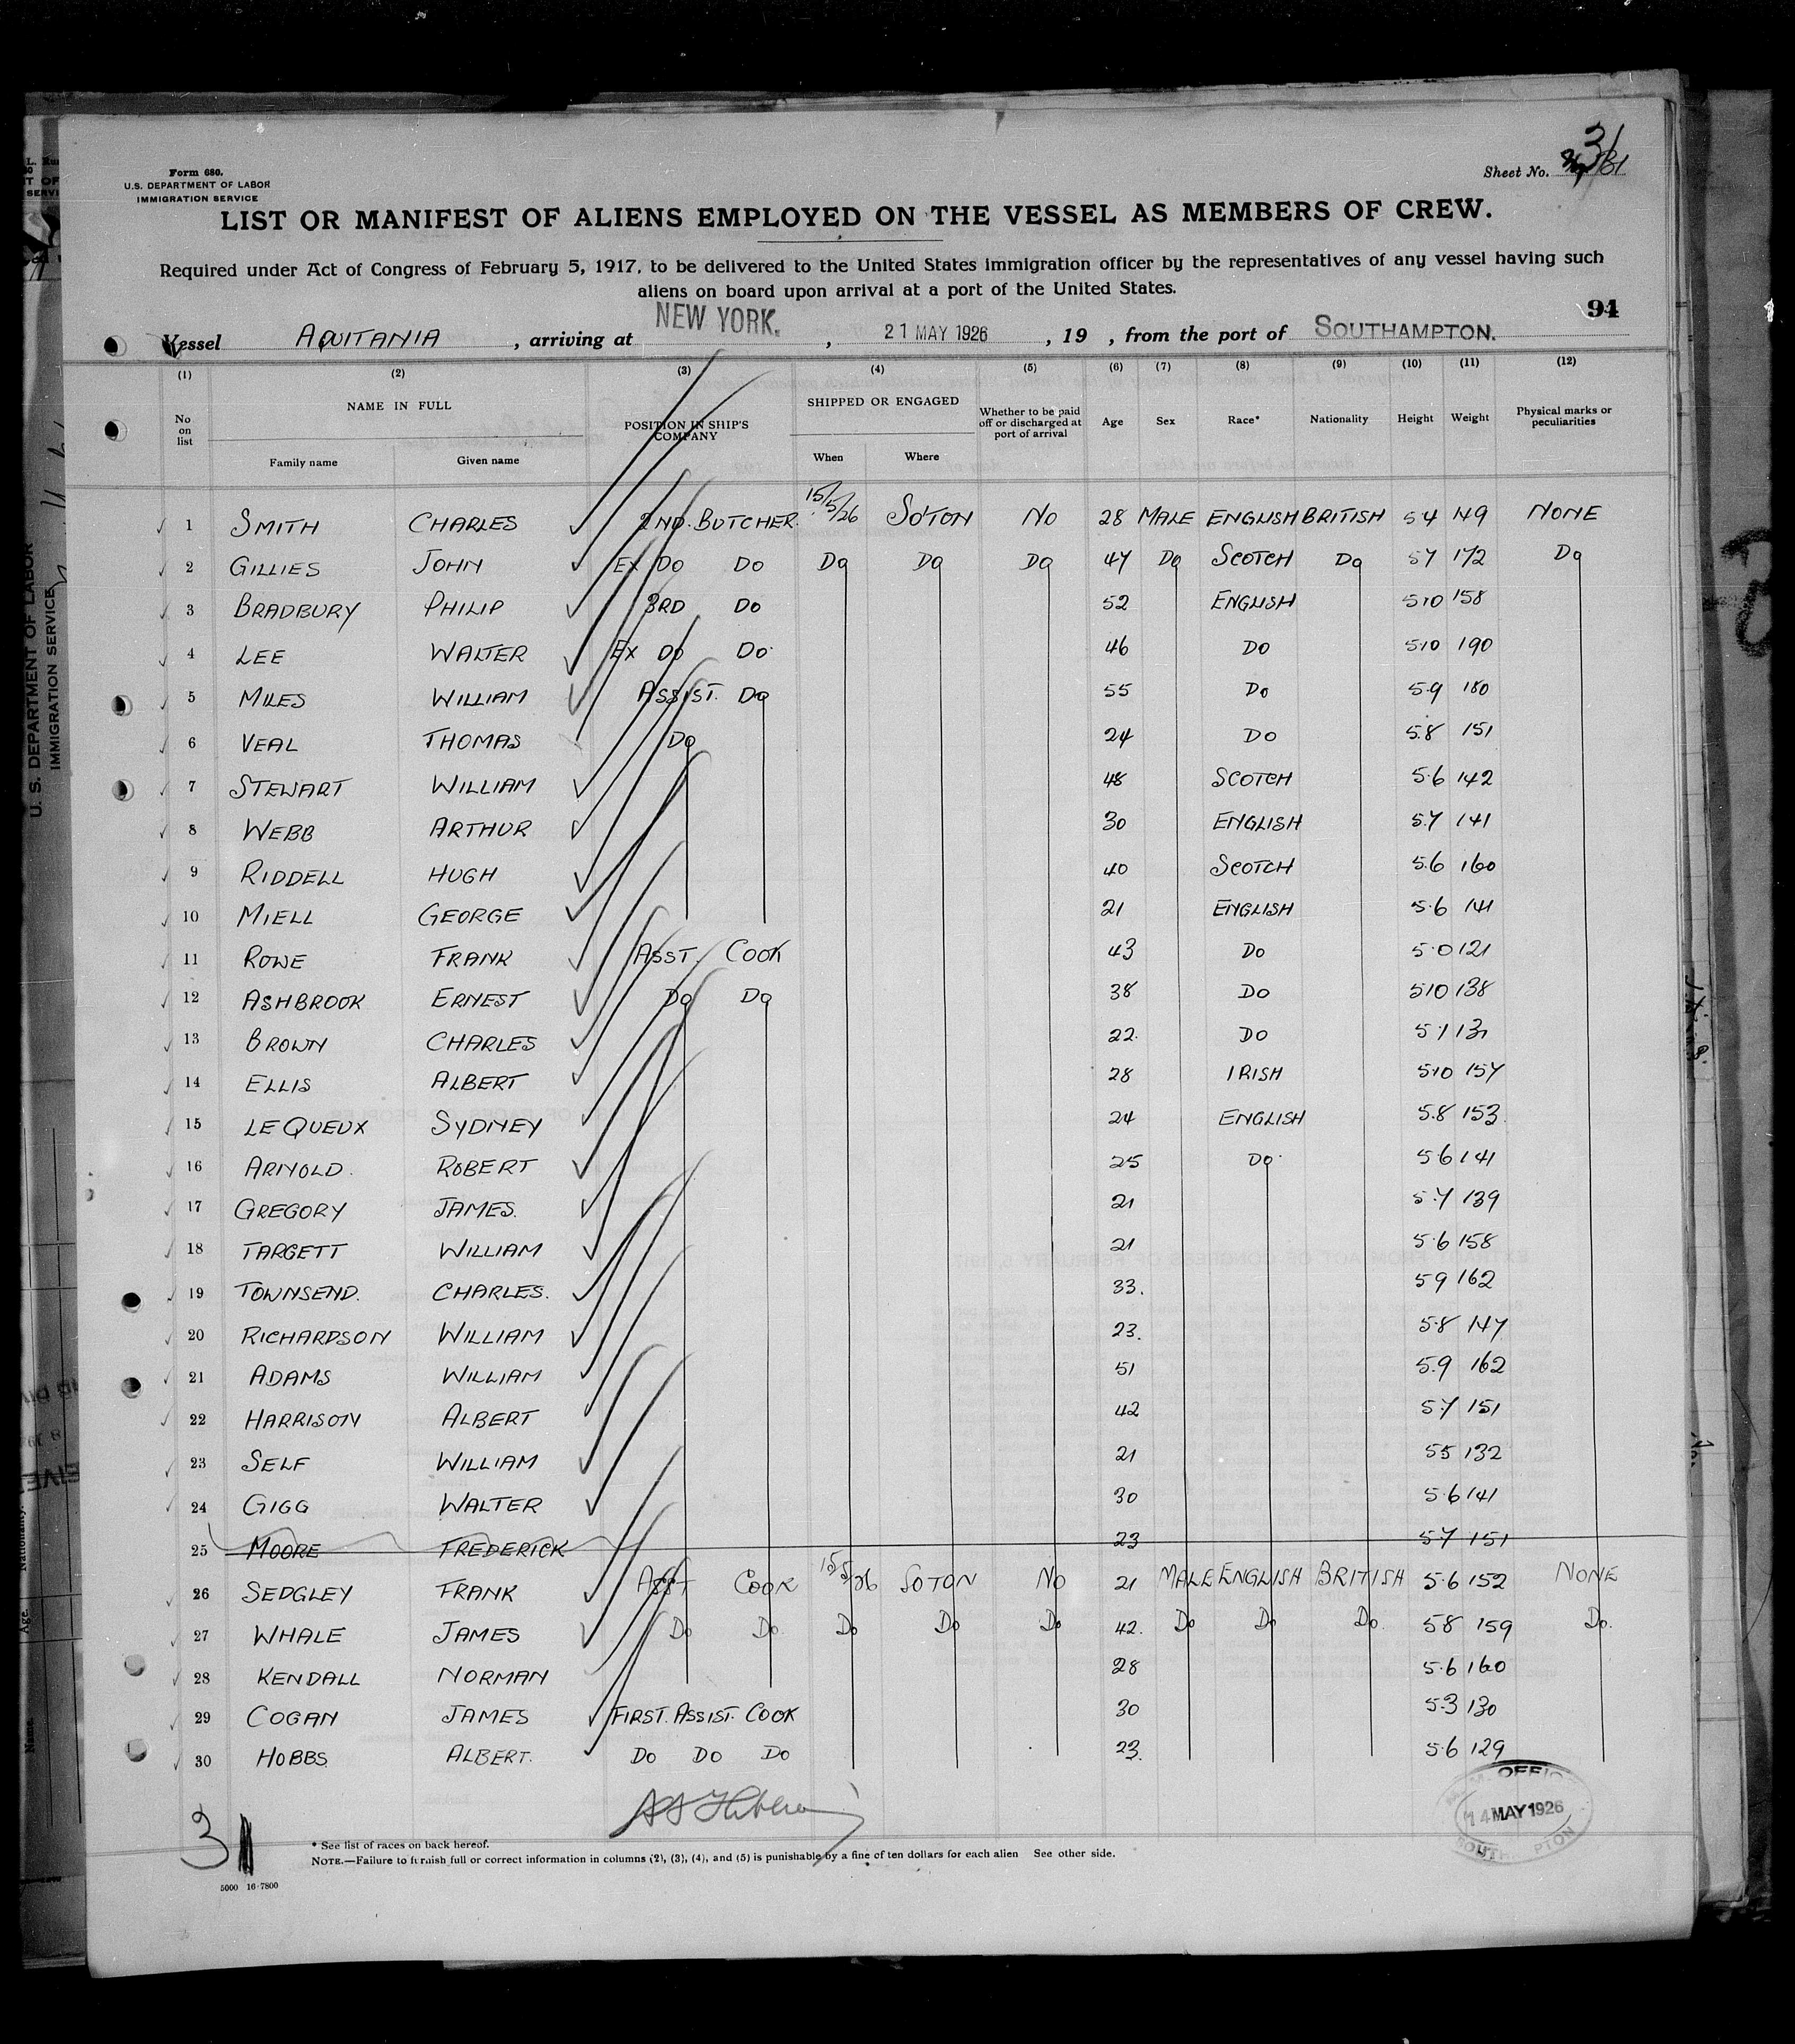 Form 680.
U.S. DEPARTMENT OF LABOR
IMMIGRATION SERVICE
Sheet No. 31
LIST OR MANIFEST OF ALIENS EMPLOYED ON THE VESSEL AS MEMBERS OF CREW.
Required under Act of Congress of February 5, 1917, to be delivered to the United States immigration officer by the representatives of any vessel having such
aliens on board upon arrival at a port of the United States.
94
Vessel AQUITANIA , arriving at NEW YORK. , 21 MAY 1926 , 19 , from the port of SOUTHAMPTON.
(1) (2) (3) (4) (5) (6) (7) (8) (9) (10) (11) (12)
No on list NAME IN FULL POSITION IN SHIP'S COMPANY SHIPPED OR ENGAGED Whether to be paid off or discharged at port of arrival Age Sex Race* Nationality Height Weight Physical marks or peculiarities
Family name Given name When Where
1 SMITH CHARLES 2ND. BUTCHER. 15/5/26 SO'TON NO 28 MALE ENGLISH BRITISH 5 4 149 NONE
2 GILLIES JOHN EX DO DO DO DO DO 47 DO SCOTCH DO 5 7 172 DO
3 BRADBURY PHILIP 3RD DO 52 ENGLISH 5 10 158
4 LEE WALTER EX DO DO 46 DO 5 10 190
5 MILES WILLIAM ASSIST. DO 55 DO 5.9 180
6 VEAL THOMAS DO 24 DO 5.8 151
7 STEWART WILLIAM 48 SCOTCH 5.6 142
8 WEBB ARTHUR 30 ENGLISH 5.7 141
9 RIDDELL HUGH 40 SCOTCH 5.6 160
10 MIELL GEORGE 21 ENGLISH 5.6 141
11 ROWE FRANK ASST. COOK 43 DO 5.0 121
12 ASHBROOK ERNEST DO DO 38 DO 5 10 138
13 BROWN CHARLES 22. DO 5 7 131
14 ELLIS ALBERT 28 IRISH 5 10 157
15 LE QUEUX SYDNEY 24 ENGLISH 5.8 153
16 ARNOLD. ROBERT 25 DO 5 6 141
17 GREGORY JAMES. 21 5.7 139
18 TARGETT WILLIAM 21 5.6 158
19 TOWNSEND. CHARLES. 33. 5 9 162
20 RICHARDSON WILLIAM 23. 5.8 147
21 ADAMS WILLIAM 51 5.9 162
22 HARRISON ALBERT 42 5.7 151
23 SELF WILLIAM 21 5 5 132
24 GIGG WALTER 30 5.6 141
25 MOORE FREDERICK 23 5.7 151
26 SEDGLEY FRANK ASST COOK 15/5/26 SOTON NO 21 MALE ENGLISH BRITISH 5.6 152 NONE
27 WHALE JAMES DO DO. DO DO DO 42. DO DO DO. 5 8 159 DO.
28 KENDALL NORMAN 28 5.6 160
29 COGAN JAMES FIRST. ASSIST. COOK 30 5.3 130
30 HOBBS ALBERT. DO DO DO 23. 5.6 129
14 MAY 1926
3
* See list of races on back hereof.
NOTE.—Failure to furnish full or correct information in columns (2), (3), (4), and (5) is punishable by a fine of ten dollars for each alien See other side.
5000 16-7800
U. S. DEPARTMENT OF LABOR
IMMIGRATION SERVICE